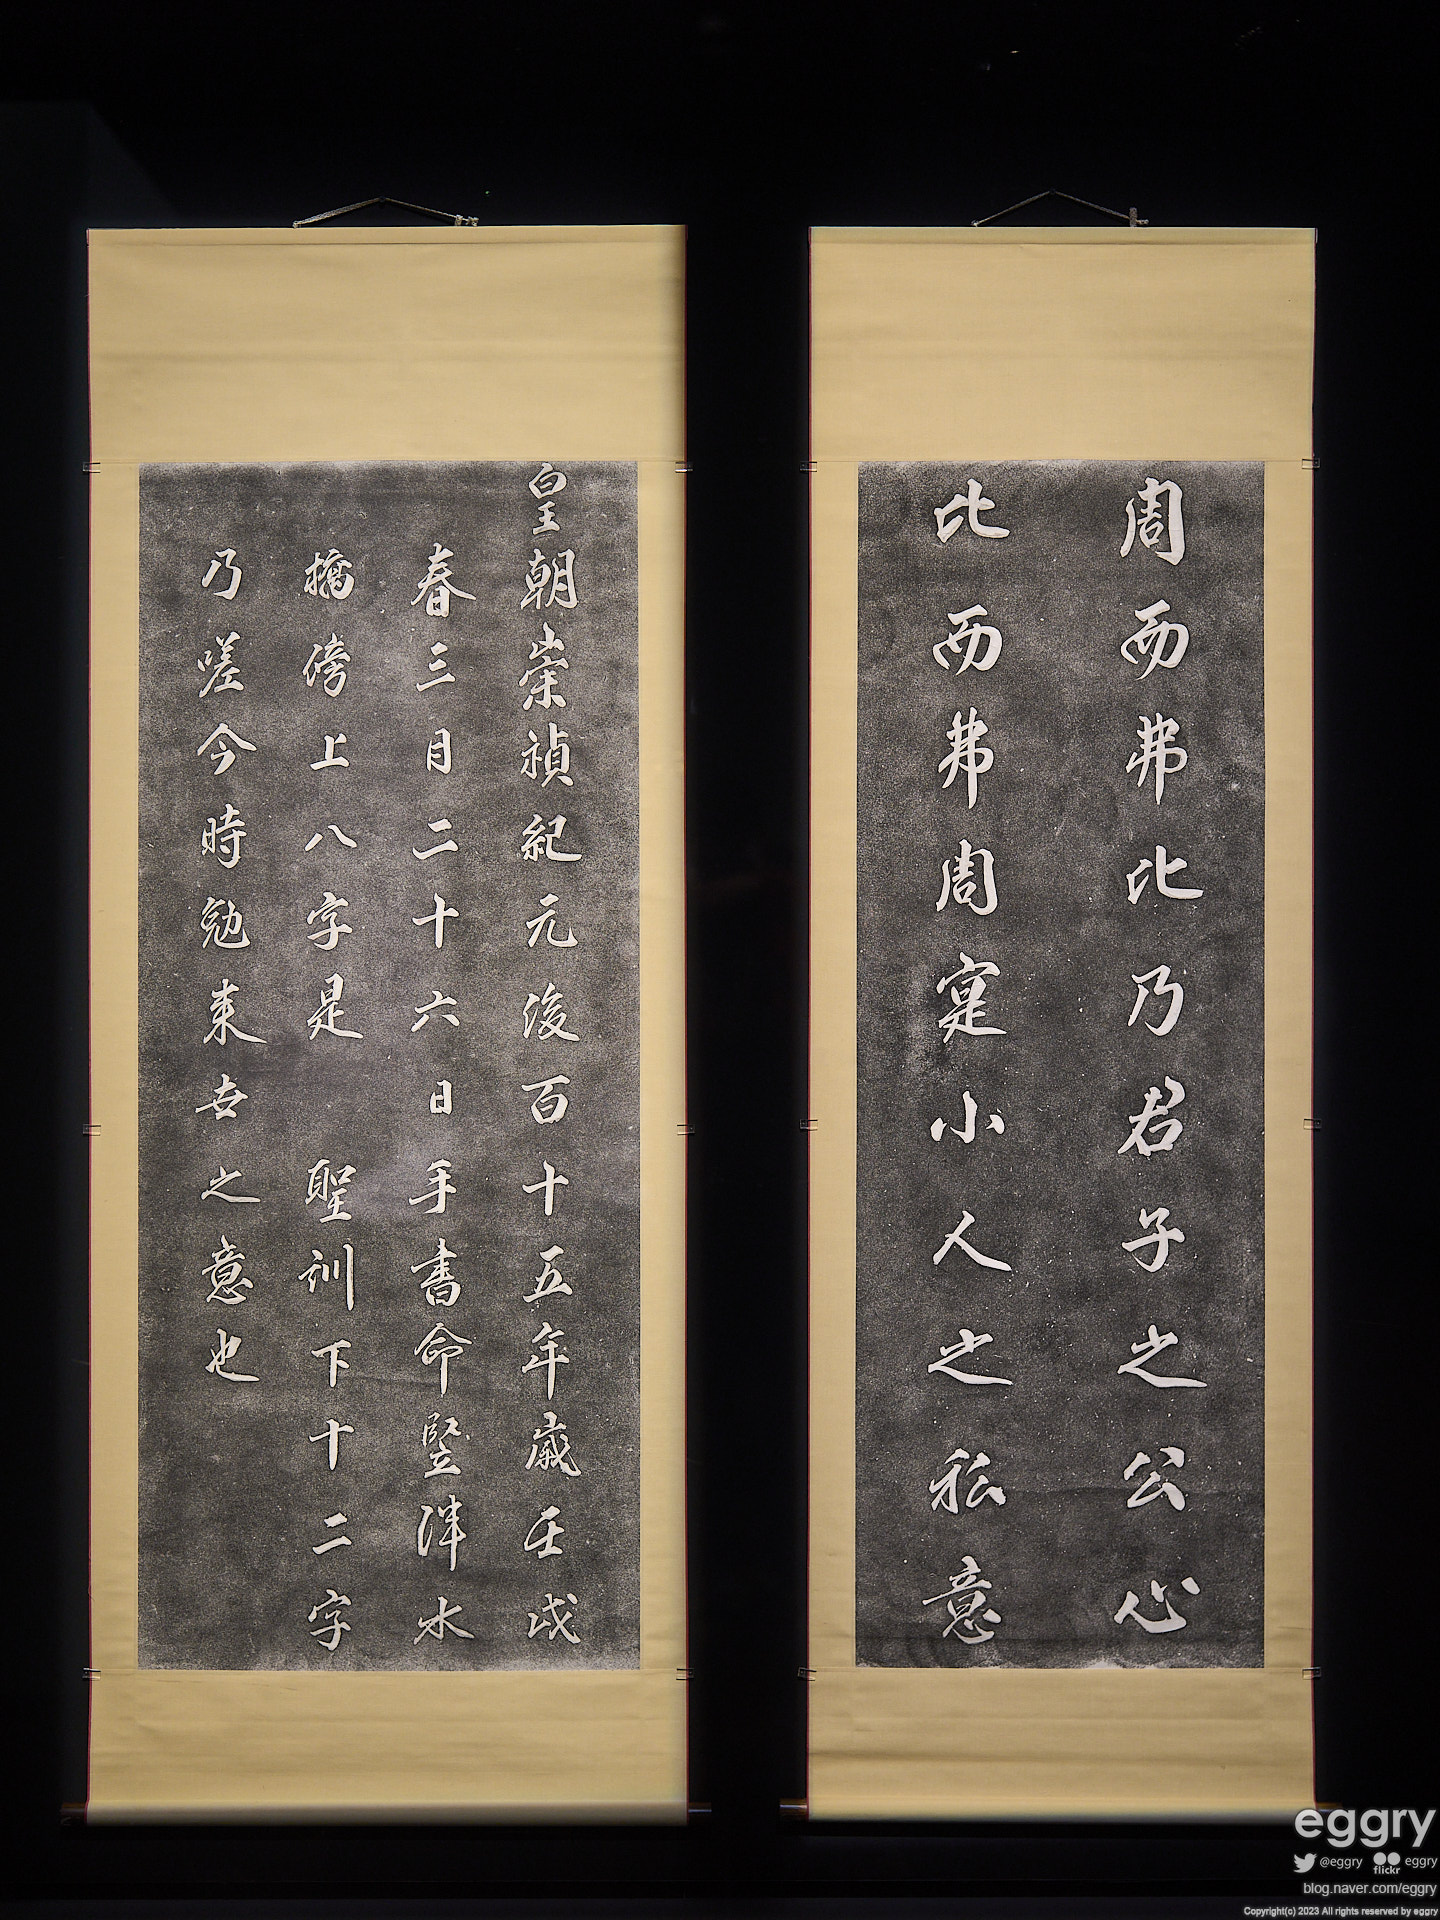 周而弗比乃君子之公心
比而弗周寔小人之私意
皇朝崇禎紀元後百十五年歲壬戌
春三月二十六日手書命竪泮水
橋傍上八字是 聖訓下十二字
乃嗟今時勉來世之意也
eggry
@eggry flickr eggry
blog.naver.com/eggry
Copyright(c) 2023 All rights reserved by eggry